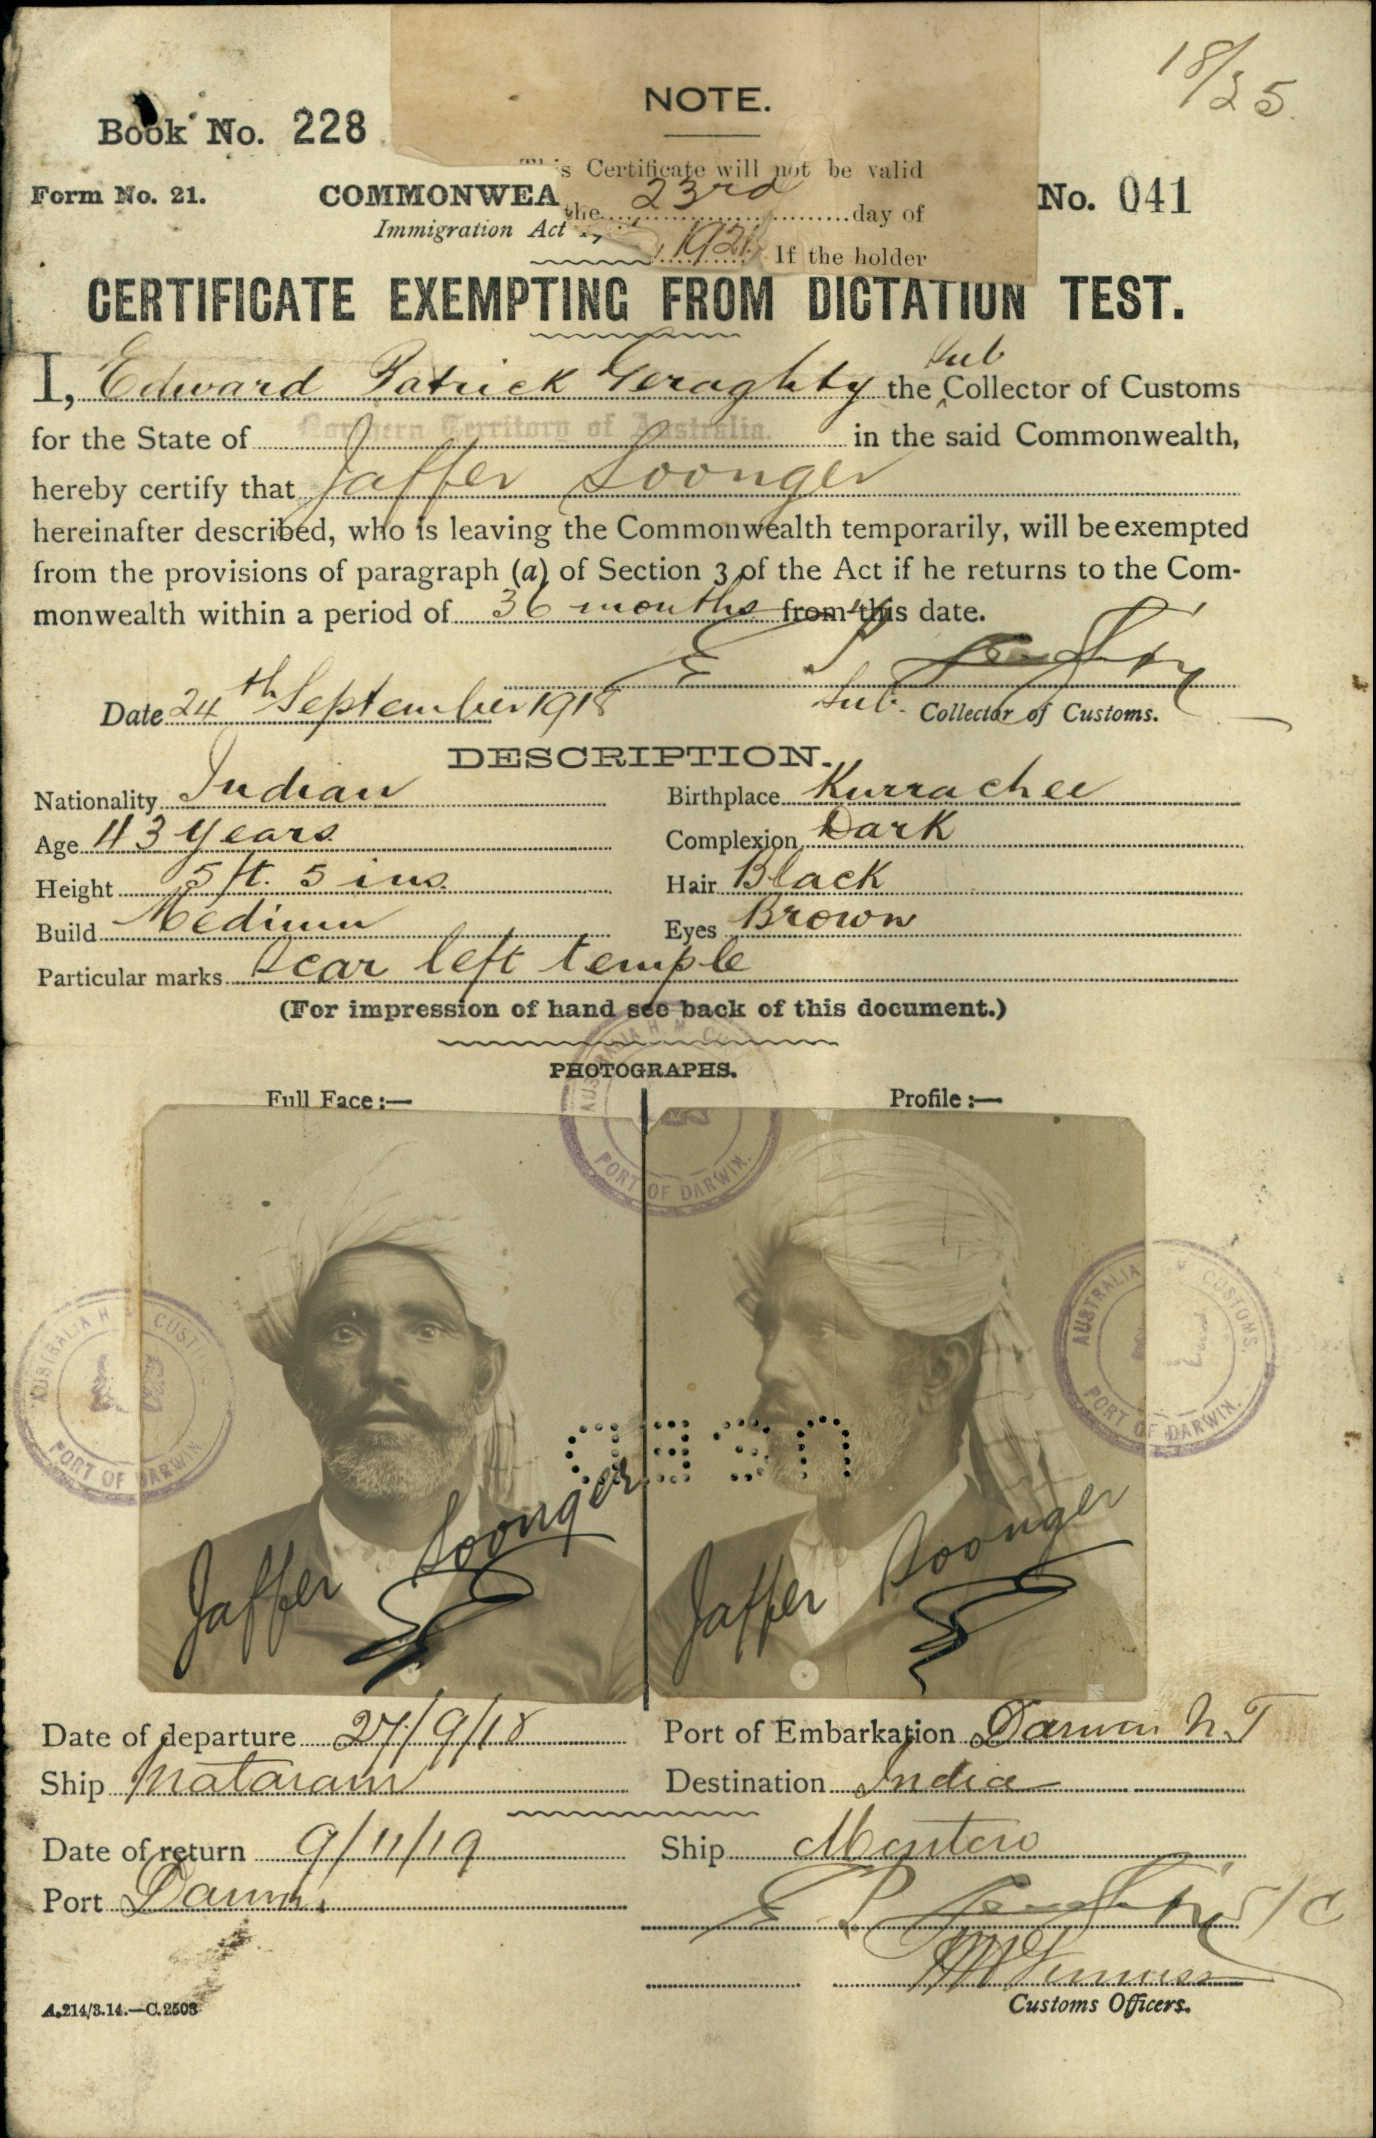 18/35
NOTE.
Book No. 228
This Certificate will not be valid
Form No. 21.
COMMONWEA
the 23rd day of
No. 041
Immigration Act
1921 If the holder
CERTIFICATE EXEMPTING FROM DICTATION TEST.
I, Edward Patrick Geraghty the Sub Collector of Customs
for the State of Northern Territory of Australia. in the said Commonwealth,
hereby certify that Jaffer Soonger
hereinafter described, who is leaving the Commonwealth temporarily, will be exempted
from the provisions of paragraph (a) of Section 3 of the Act if he returns to the Com-
monwealth within a period of 36 months from this date.
E P Geraghty
Date 24th September 1918
Sub. Collector of Customs.
DESCRIPTION.
Nationality Indian
Birthplace Kurrachee
Age 43 years
Complexion Dark
Height 5 ft. 5 ins.
Hair Black
Build Medium
Eyes Brown
Particular marks Scar left temple
(For impression of hand see back of this document.)
PHOTOGRAPHS.
Full Face:—
Profile:—
AUSTRALIA H. M. CUSTOMS.
PORT OF DARWIN.
AUSTRALIA H. M. CUSTOMS.
PORT OF DARWIN.
AUSTRALIA H. M. CUSTOMS.
PORT OF DARWIN.
Jaffer Soonger
Jaffer Soonger
Date of departure 27/9/18
Port of Embarkation Darwin N.T
Ship Mataram
Destination India
Date of return 9/11/19
Ship Montoro
Port Darwin.
E P Geraghty S/C
Customs Officers.
A.214/3.14.—C.2503